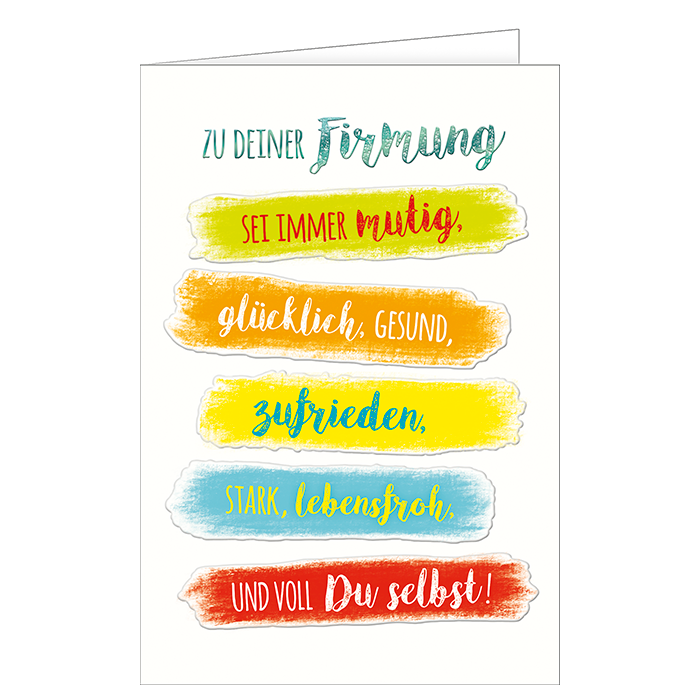 ZU DEINER Firmung
SEI IMMER mutig,
glücklich, GESUND,
zufrieden,
STARK, lebensfroh,
UND VOLL Du selbst!